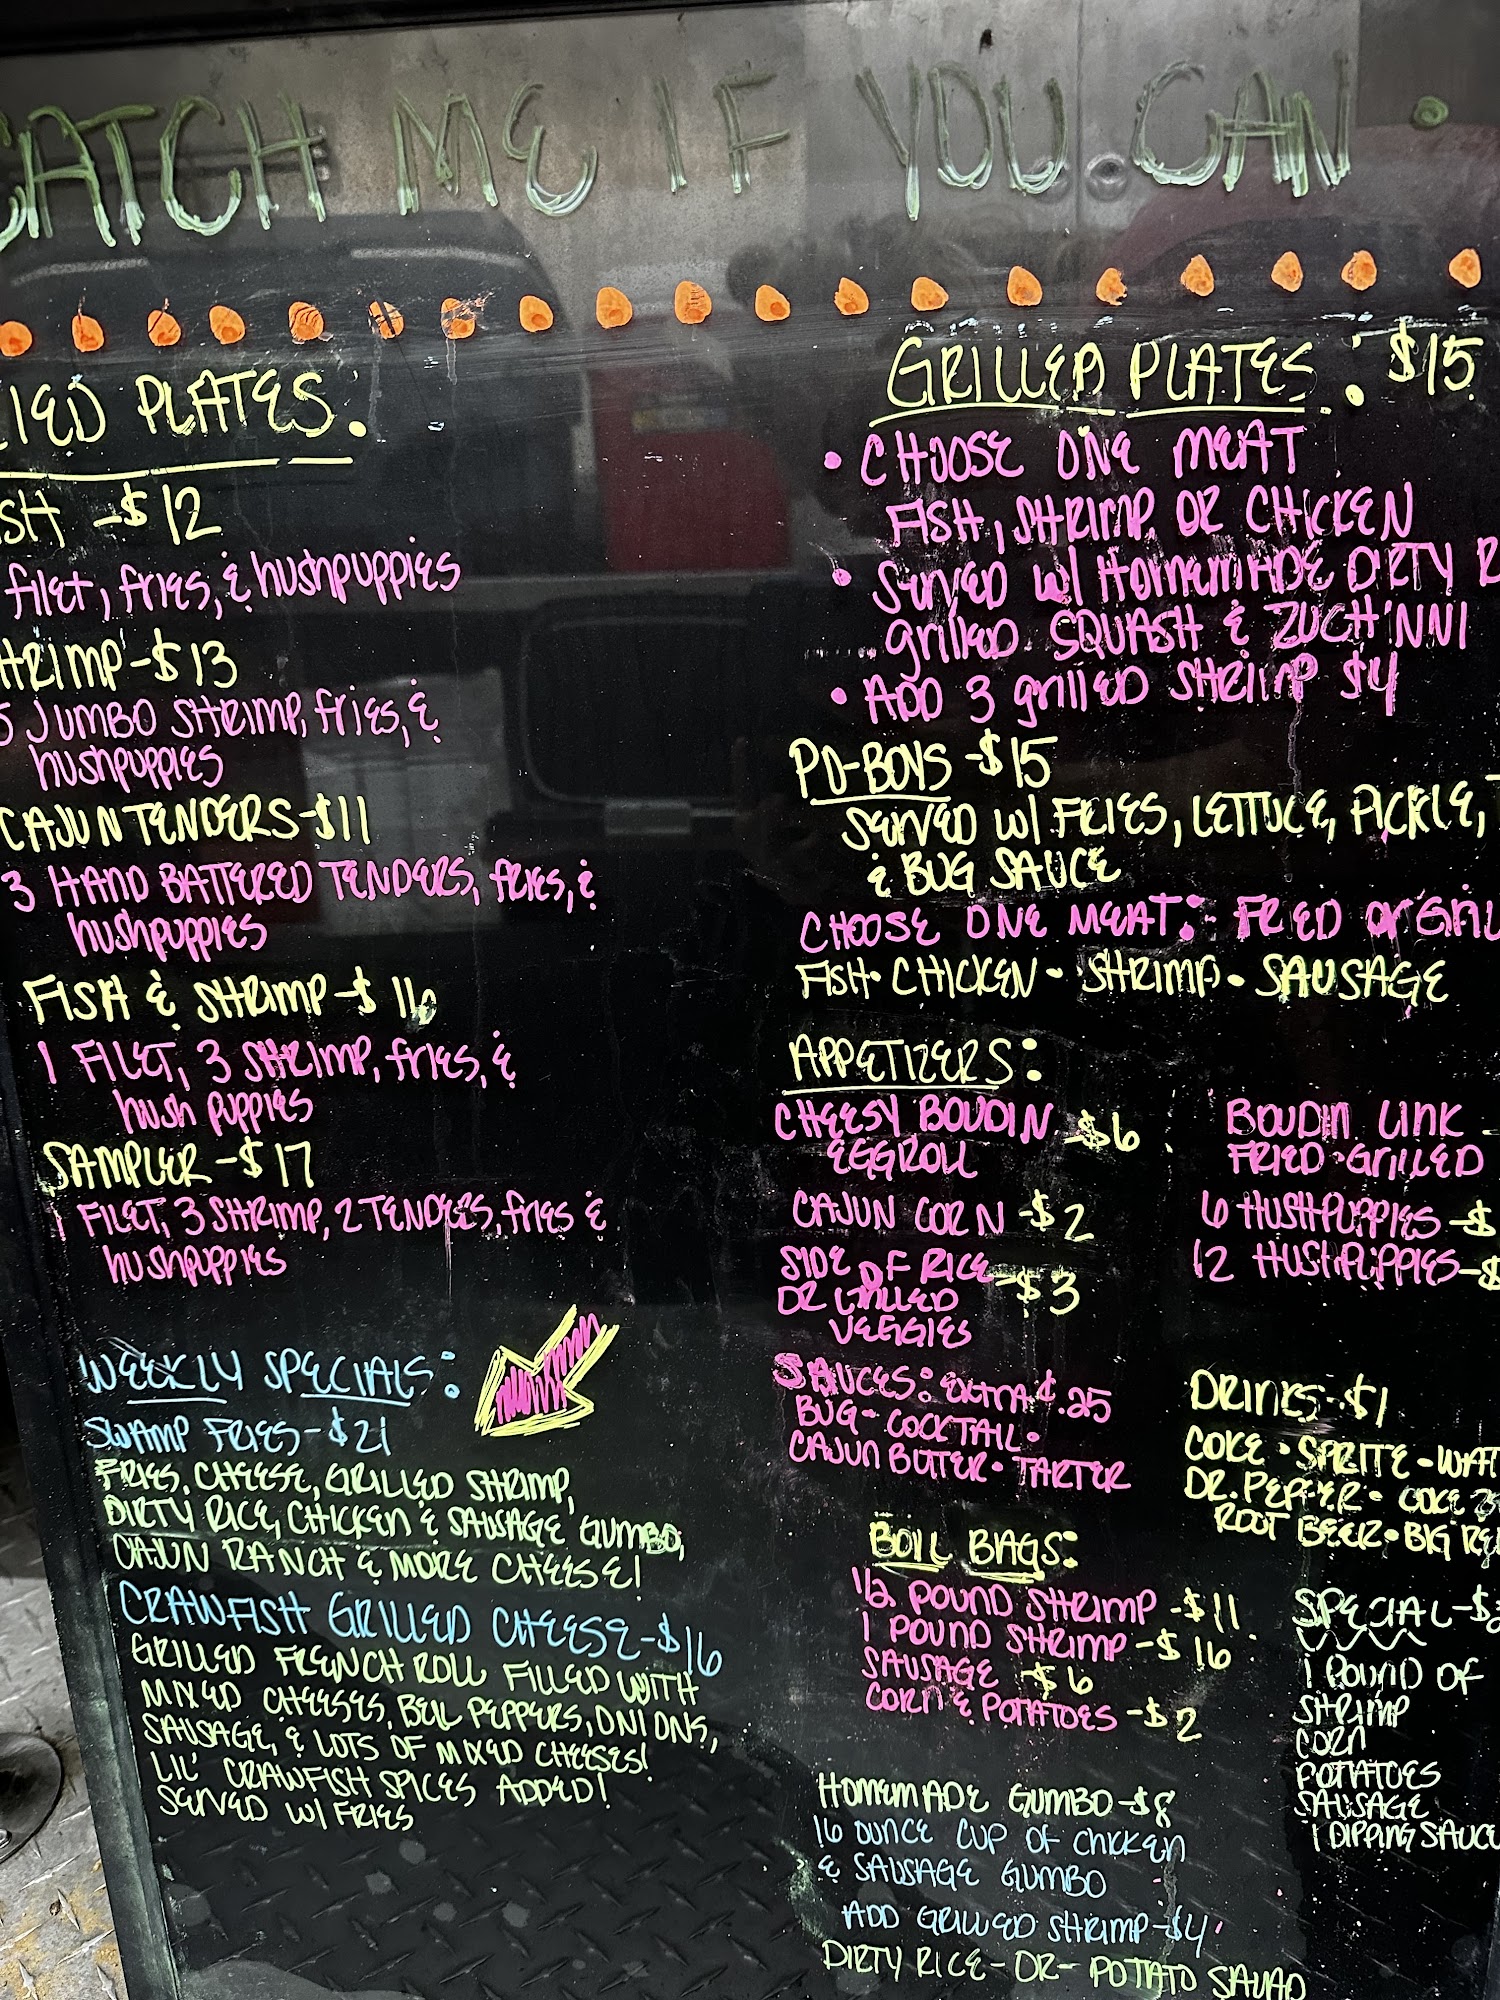 CATCH ME IF YOU CAN
FRIED PLATES:
FISH - $12
filet, fries, & hushpuppies
SHRIMP - $13
5 JUMBO SHRIMP, fries, &
hushpuppies
CAJUN TENDERS - $11
3 HAND BATTERED TENDERS, fries, &
hushpuppies
FISH & SHRIMP - $16
1 FILET, 3 SHRIMP, fries, &
hush puppies
SAMPLER - $17
1 FILET, 3 SHRIMP, 2 TENDERS, fries &
hushpuppies
WEEKLY SPECIALS:
SWAMP FRIES - $21
FRIES, CHEESE, GRILLED SHRIMP,
DIRTY RICE, CHICKEN & SAUSAGE GUMBO,
CAJUN RANCH & MORE CHEESE!
CRAWFISH GRILLED CHEESE - $16
GRILLED FRENCH ROLL FILLED WITH
MIXED CHEESES, BELL PEPPERS, ONIONS,
SAUSAGE, & LOTS OF MIXED CHEESES!
LIL' CRAWFISH SPICES ADDED!
SERVED W/ FRIES
GRILLED PLATES: $15
• CHOOSE ONE MEAT
FISH, SHRIMP OR CHICKEN
• SERVED W/ HOMEMADE DIRTY R
grilled SQUASH & ZUCHINNI
• ADD 3 grilled SHRIMP $4
PO-BOYS - $15
SERVED W/ FRIES, LETTUCE, PICKLE,
& BUG SAUCE
CHOOSE ONE MEAT: FRIED or GRIL
FISH • CHICKEN • SHRIMP • SAUSAGE
APPETIZERS:
CHEESY BOUDIN - $6
EGGROLL
CAJUN CORN - $2
SIDE OF RICE - $3
OR GRILLED
VEGGIES
BOUDIN LINK -
FRIED • GRILLED
6 HUSHPUPPIES - $
12 HUSHPUPPIES - $
SAUCES: EXTRA $.25
BUG • COCKTAIL •
CAJUN BUTTER • TARTER
DRINKS - $1
COKE • SPRITE • WAT
DR. PEPPER • COKE
ROOT BEER • BIG RE
BOIL BAGS:
1/2 POUND SHRIMP - $11
1 POUND SHRIMP - $16
SAUSAGE $6
CORN & POTATOES - $2
SPECIAL - $
1 POUND OF
SHRIMP
CORN
POTATOES
SAUSAGE
1 DIPPING SAUCE
HOMEMADE GUMBO - $8
16 OUNCE CUP OF CHICKEN
& SAUSAGE GUMBO
ADD GRILLED SHRIMP - $4
DIRTY RICE - OR - POTATO SALAD